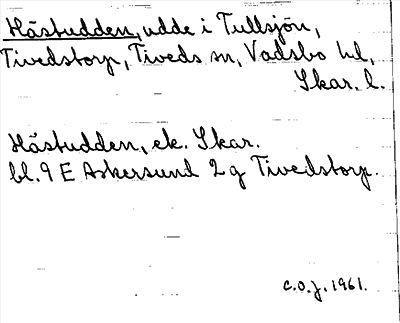 Hästudden, udde i Tullsjön,
Tivedstorp, Tiveds sn, Vadsbo hd,
Skar. l.
Hästudden, ek. Skar.
bl. 9 E Askersund 2 g Tivedstorp.
C.O.J. 1961.